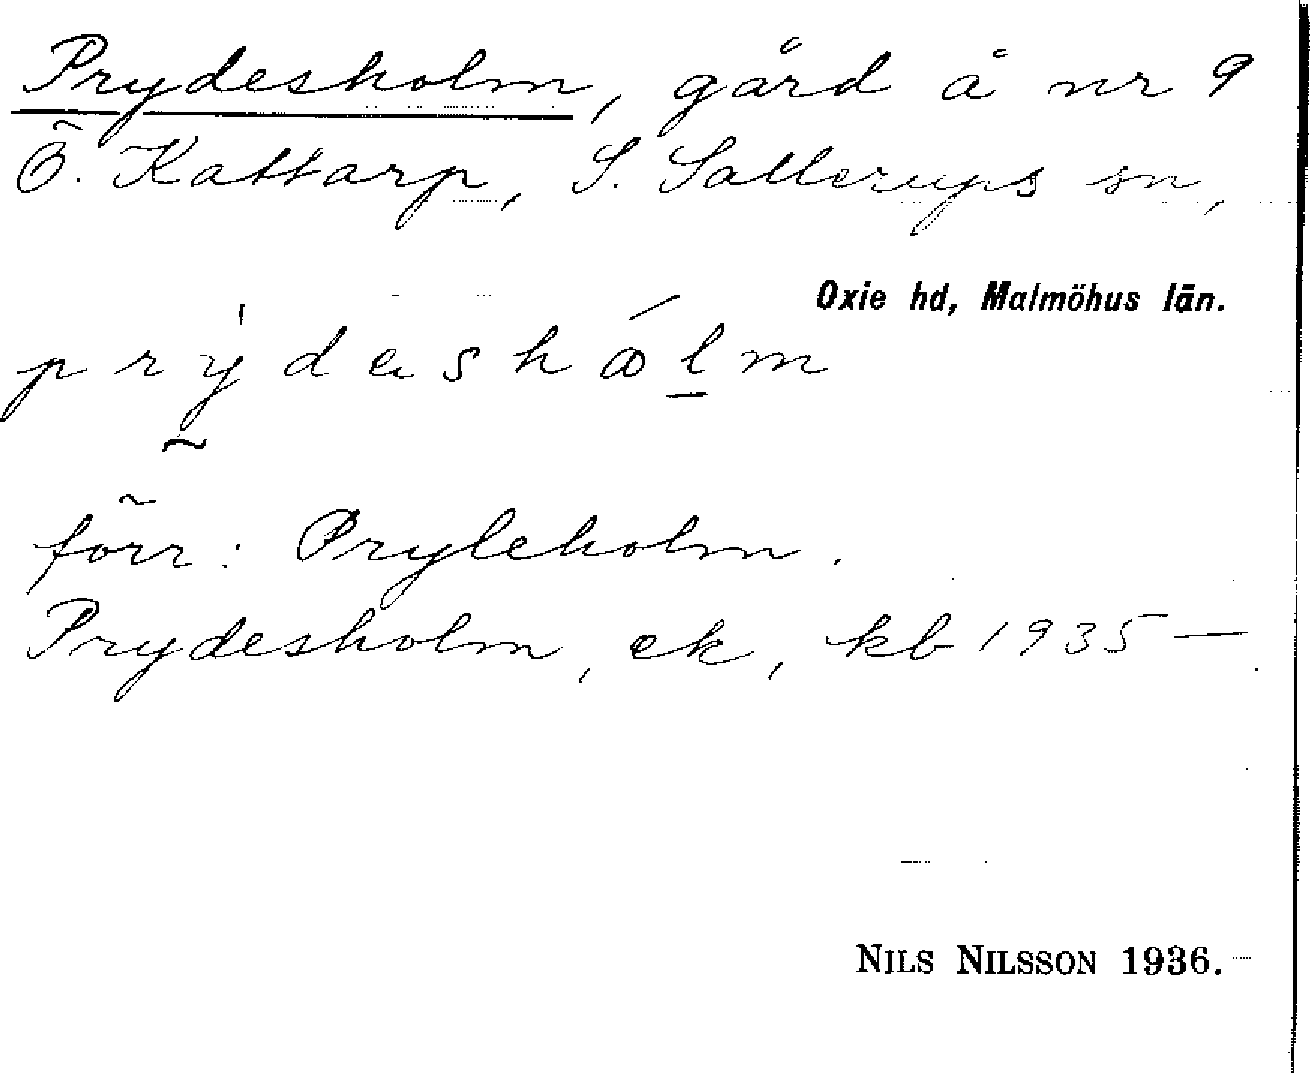 Prydesholm, gård å nr 9
Ö. Kattarp, S. Sallerups sn,
Oxie hd, Malmöhus län.
prydesholm
förr: Pryleholm.
Prydesholm, ek, kb 1935—
NILS NILSSON 1936.